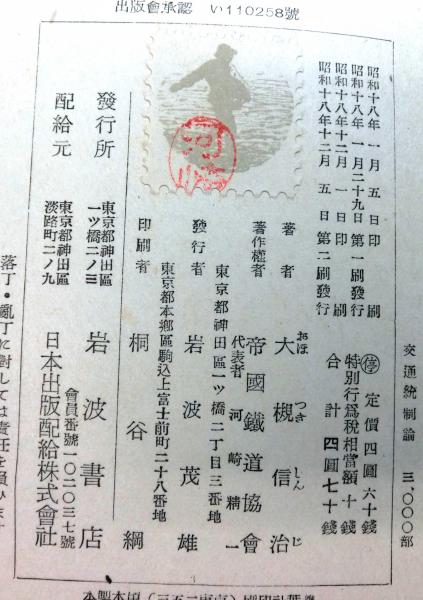 出版會承認　い110258號
交通統制論　三、〇〇〇部
昭和十八年　一月　五日印　刷
昭和十八年　一月二十九日　第一刷發行
昭和十八年十二月　一日印　刷
昭和十八年十二月　五日　第二刷發行
㊡　定價四圓六十錢
特別行爲稅相當額十錢
合計　四圓七十錢
著者　大槻信治
おほつきしんじ
著作權者　帝國鐵道協會
代表者　河崎精一
東京都神田區一ツ橋二丁目三番地
發行者　岩波茂雄
東京都本鄕區駒込上富士前町二十八番地
印刷者　桐谷綱
發行所　東京都神田區一ツ橋二ノ三　岩波書店
會員番號一〇二〇三七號
配給元　東京都神田區淡路町二ノ九　日本出版配給株式會社
落丁・亂丁に對しては責任を負ひます